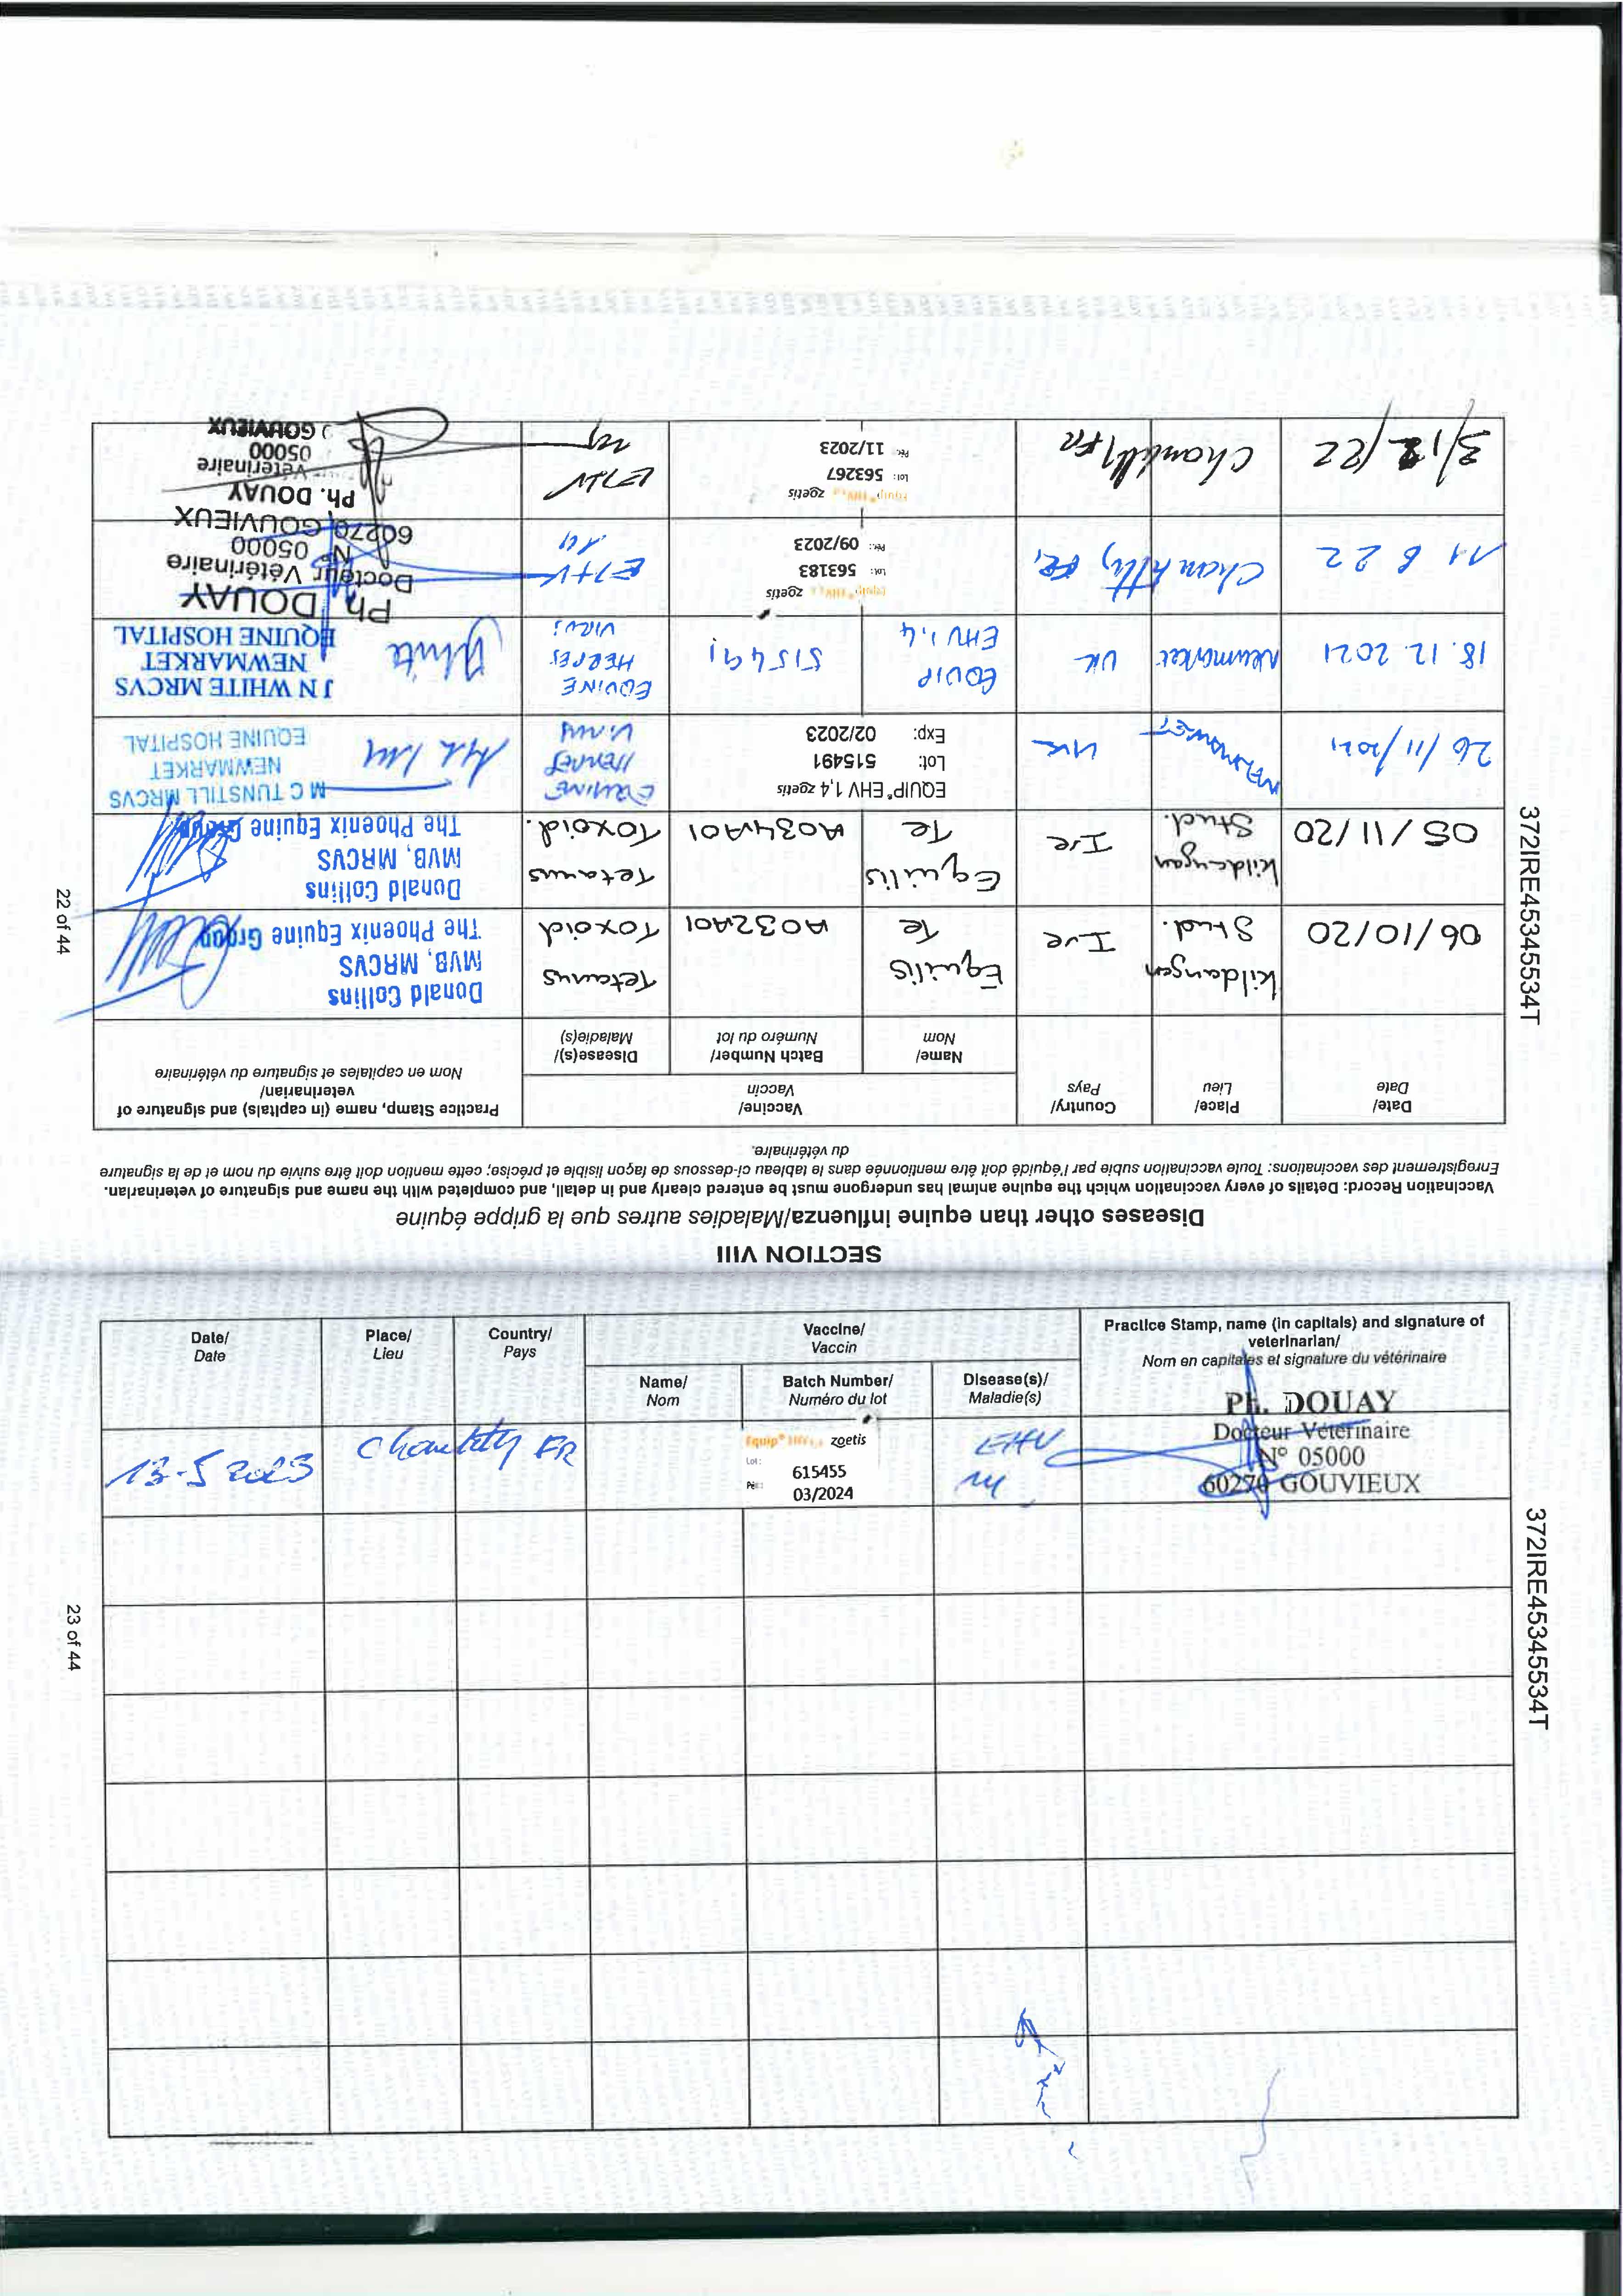 SECTION VIII
Diseases other than equine influenza/Maladies autres que la grippe équine
Vaccination Record: Details of every vaccination which the equine animal has undergone must be entered clearly and in detail, and completed with the name and signature of veterinarian.
Enregistrement des vaccinations: Toute vaccination subie par l'équidé doit être mentionnée dans le tableau ci-dessous de façon lisible et précise; cette mention doit être suivie du nom et de la signature
du vétérinaire.
Date/
Date
Place/
Lieu
Country/
Pays
Vaccine/
Vaccin
Name/
Nom
Batch Number/
Numéro du lot
Disease(s)/
Maladie(s)
Practice Stamp, name (in capitals) and signature of
veterinarian/
Nom en capitales et signature du vétérinaire
06/10/20
Kildangan
Stud.
Ire
Equilis
Te
A032A01
Tetanus
Toxoid
Donald Collins
MVB, MRCVS
The Phoenix Equine Group
05/11/20
Kildangan
Stud.
Ire
Equilis
Te
A034A01
Tetanus
Toxoid.
Donald Collins
MVB, MRCVS
The Phoenix Equine Group
26/11/2021
NEWMARKET
UK
EQUIP® EHV 1,4 zoetis
Lot: 515491
Exp: 02/2023
EQUINE
HERPES
VIRUS
M C TUNSTILL MRCVS
NEWMARKET
EQUINE HOSPITAL
18.12.2021
Newmarket
UK
EQUIP
EHV 1,4
515491
EQUINE
HERPES
VIRUS
J N WHITE MRCVS
NEWMARKET
EQUINE HOSPITAL
White
11 6 22
Chantilly, FR,
zoetis
Lot: 563183
Pér.: 09/2023
EHV
1.4
Ph DOUAY
Docteur Vétérinaire
N° 05000
60270 GOUVIEUX
3/12/22
Chantilly FR
zoetis
Lot: 563267
Pér.: 11/2023
EHV
Ph. DOUAY
Vétérinaire
05000
GOUVIEUX
372IRE45345534T
22 of 44
Date/
Date
Place/
Lieu
Country/
Pays
Vaccine/
Vaccin
Name/
Nom
Batch Number/
Numéro du lot
Disease(s)/
Maladie(s)
Practice Stamp, name (in capitals) and signature of
veterinarian/
Nom en capitales et signature du vétérinaire
13-5 2023
Chantilly FR
Equip® zoetis
Lot: 615455
Pér.: 03/2024
EHV
Ph. DOUAY
Docteur Vétérinaire
N° 05000
60270 GOUVIEUX
372IRE45345534T
23 of 44